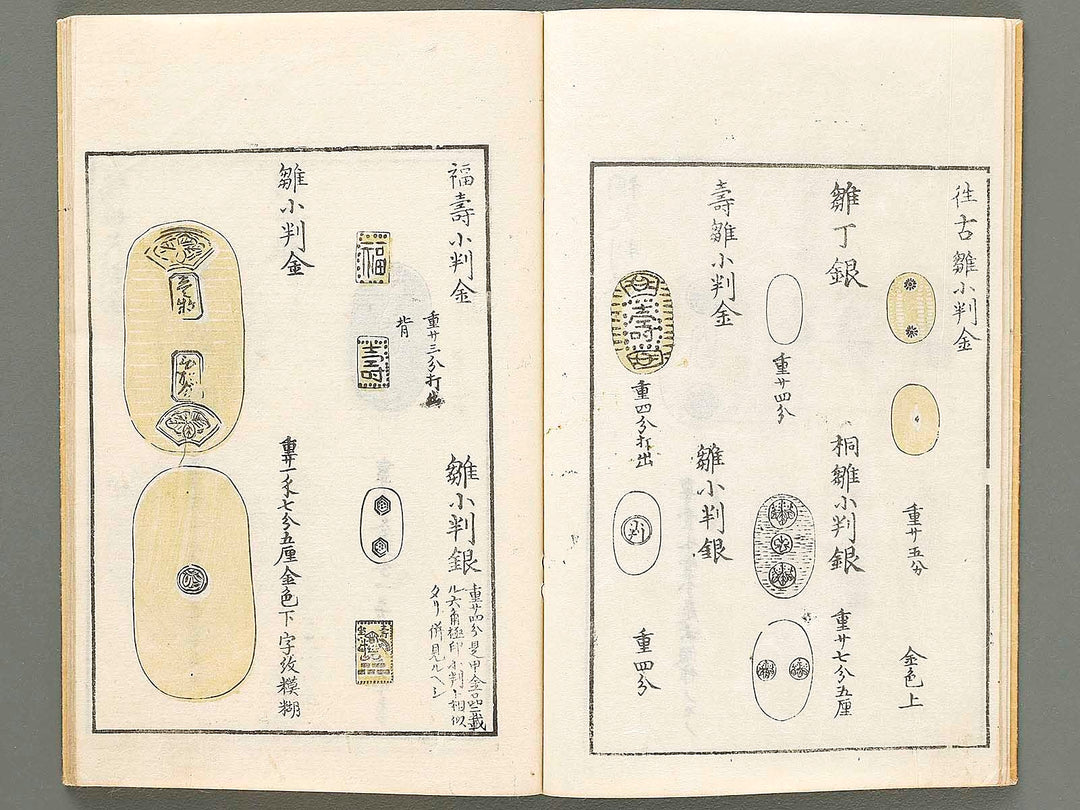 往古雛小判金
重廿五分
金色上
雛丁銀
重廿四分
桐雛小判銀
重廿七分五厘
壽雛小判金
壽
重四分打出
雛小判銀
重四分
福壽小判金
重廿三分打出
背
福
壽
雛小判銀
重廿四分是甲金ニ載
ル六角極印小判ニ相似
タリ併見ルヘシ
雛小判金
重廿一匁七分五厘金色下字紋糢糊